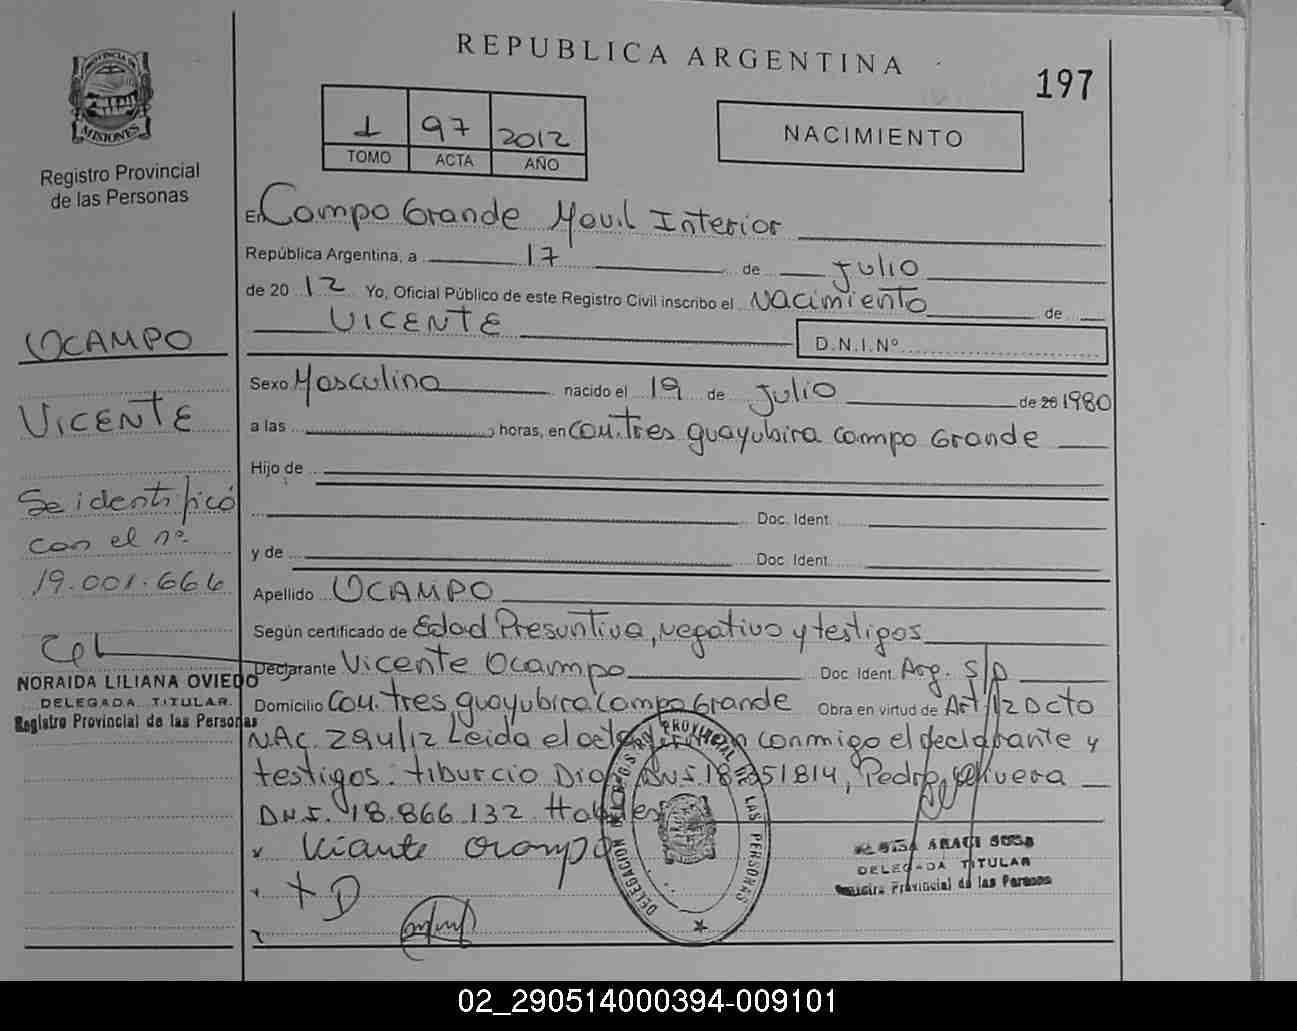 REPUBLICA ARGENTINA
197
PROVINCIA DE
MISIONES
Registro Provincial
de las Personas
1 97 2012
TOMO ACTA AÑO
NACIMIENTO
En Campo Grande Movil Interior
República Argentina, a 17 de Julio
de 20 12 Yo, Oficial Público de este Registro Civil inscribo el Nacimiento de
VICENTE
D.N.I.Nº
OCAMPO
VICENTE
Se identificó
con el nº
19.001.664
NORAIDA LILIANA OVIEDO
DELEGADA TITULAR
Registro Provincial de las Personas
Sexo Masculino nacido el 19 de Julio de 20 1980
a las horas, en Cou.tres guayubira campo Grande
Hijo de
Doc. Ident.
y de Doc. Ident.
Apellido OCAMPO
Según certificado de Edad Presuntiva, negativo y testigos
Declarante Vicente Ocampo Doc. Ident. Arg. S/D
Domicilio Cou.tres guayubira Campo Grande Obra en virtud de Art 12 Dcto
NAC. 294/12 Leida el acta firman conmigo el declarante y
testigos: tiburcio D.N.I. 18.351814, Pedro
D.N.I. 18.866.132 Habiles
Vicente Ocampo
DELEGACION REGISTRO PROVINCIAL DE LAS PERSONAS
ARACI SOSA
DELEGADA TITULAR
Registro Provincial de las Personas
02_290514000394-009101